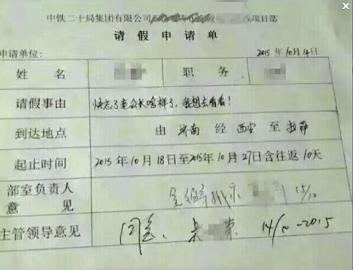 中铁二十局集团有限公司 项目部
请假申请单
申请单位: 2015年10月14日
姓名 职务
请假事由 快忘了老公长啥样了,我想去看看!
到达地点 由 济南 经 西安 至 拉萨
起止时间 2015年10月18日至2015年10月27日含往返10天
部室负责人
意见 15/10
主管领导意见 同意 14/10-2015